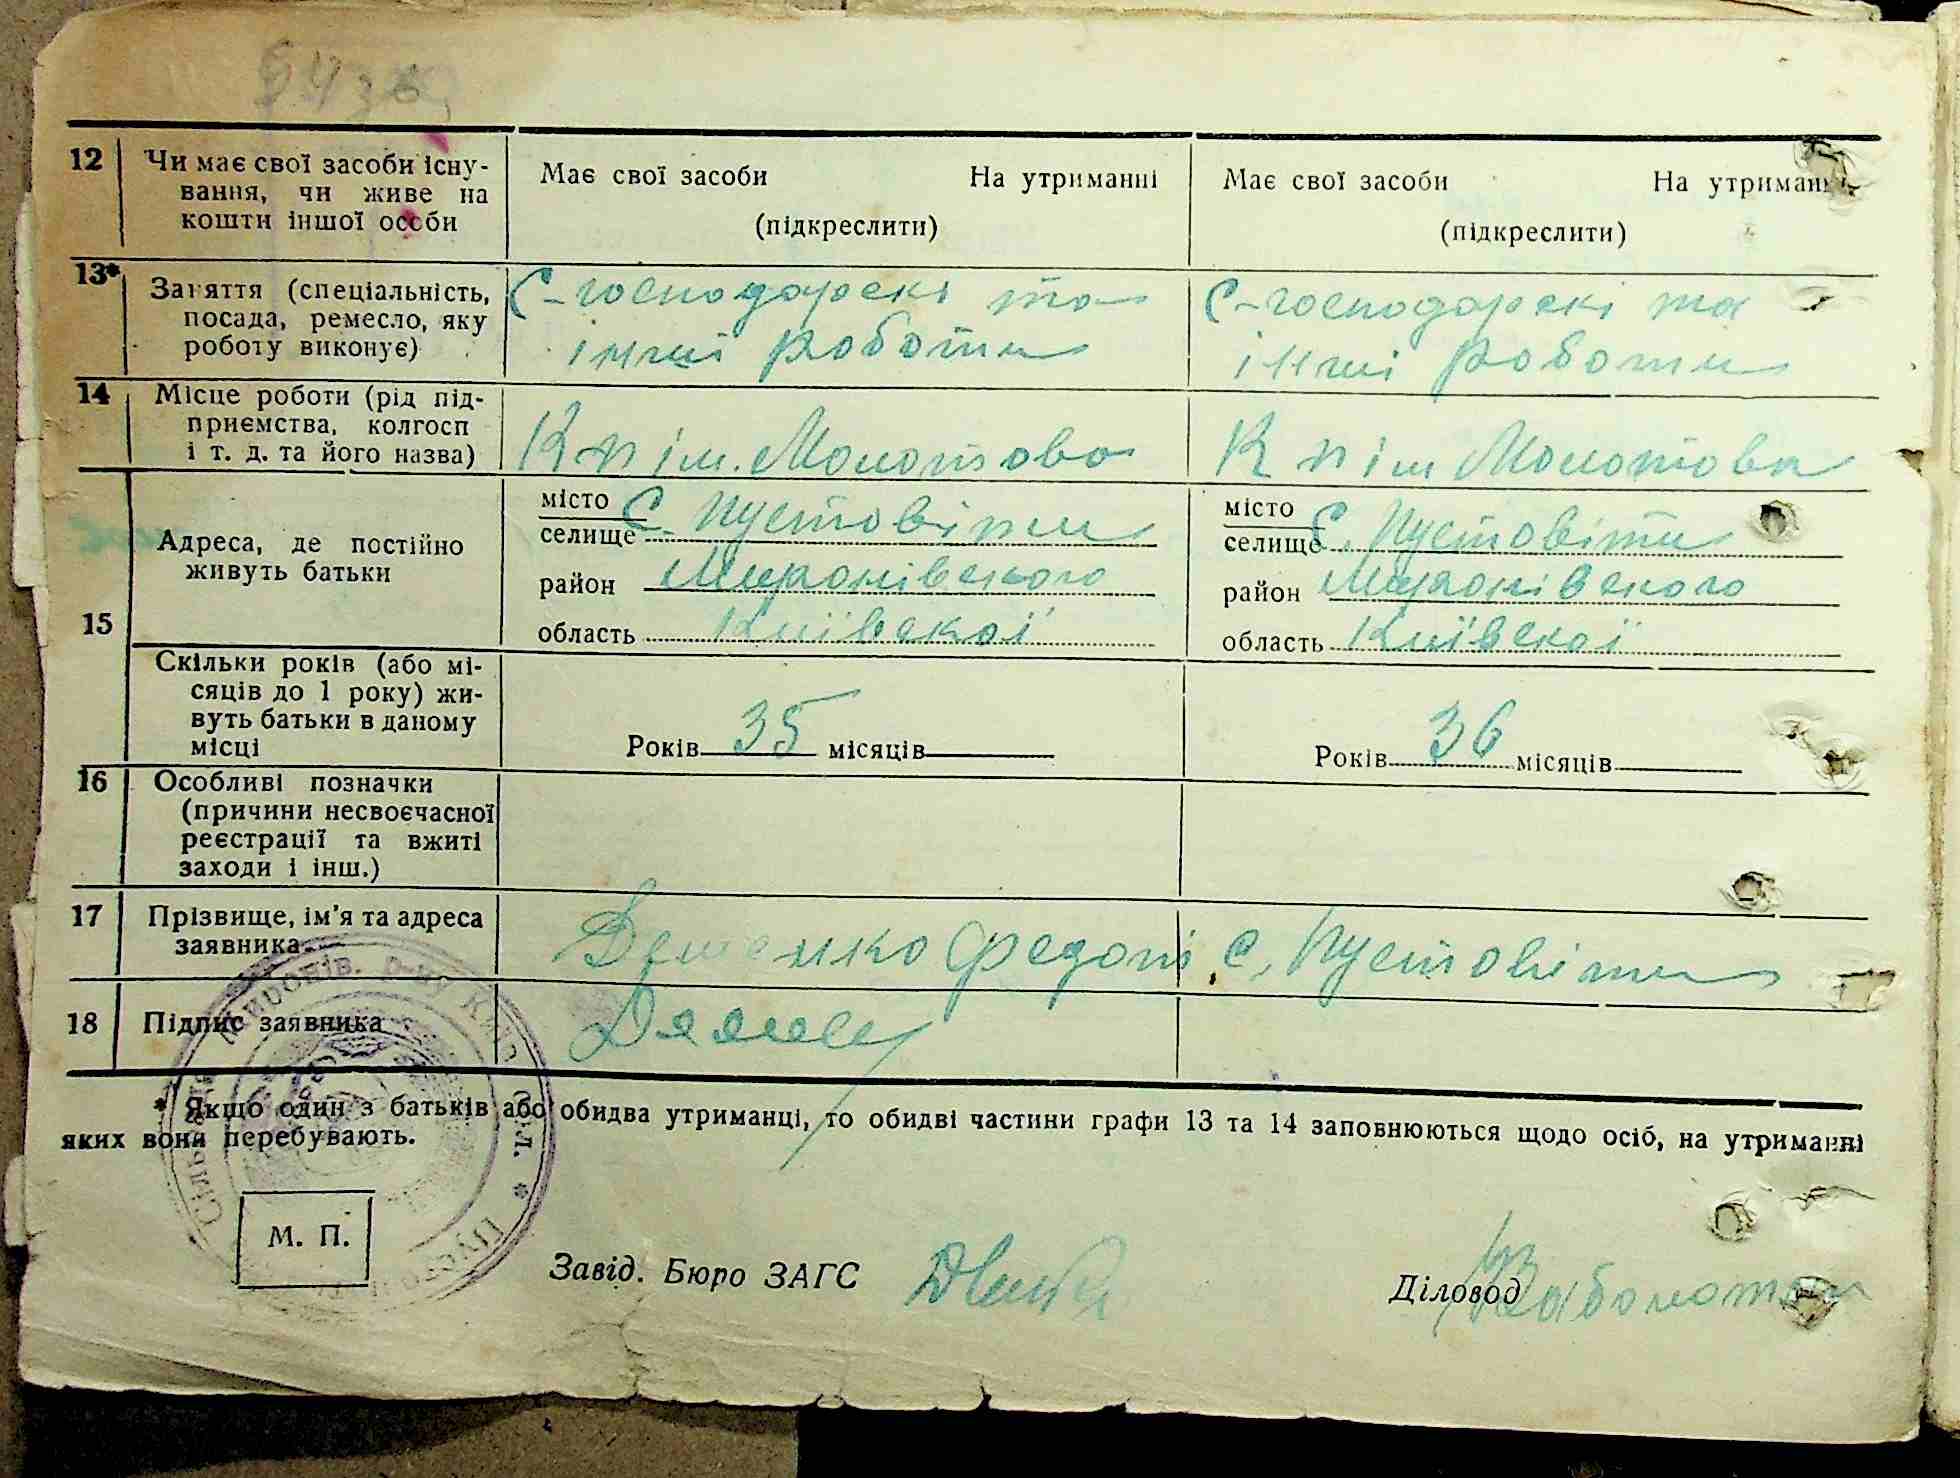 12 Чи має свої засоби існу-
вання, чи живе на
кошти іншої особи
Має свої засоби На утриманні
(підкреслити)
Має свої засоби На утриманні
(підкреслити)
13* Заняття (спеціальність,
посада, ремесло, яку
роботу виконує)
С-господарскі та
інші роботи
С-господарскі та
інші роботи
14 Місце роботи (рід під-
приємства, колгосп
і т. д. та його назва)
К-п ім. Молотова
К-п ім Молотова
15 Адреса, де постійно
живуть батьки
місто
селище С. Пустовіти
район Миронівского
область Київскої
місто
селище С. Пустовіти
район Миронівского
область Київскої
Скільки років (або мі-
сяців до 1 року) жи-
вуть батьки в даному
місці
Років 35 місяців
Років 36 місяців
16 Особливі позначки
(причини несвоєчасної
реєстрації та вжиті
заходи і інш.)
17 Прізвище, ім'я та адреса
заявника
Федот, с. Пустовіти
18 Підпис заявника
* Якщо один з батьків або обидва утриманці, то обидві частини графи 13 та 14 заповнюються щодо осіб, на утриманні
яких вони перебувають.
М. П.
Завід. Бюро ЗАГС
Діловод